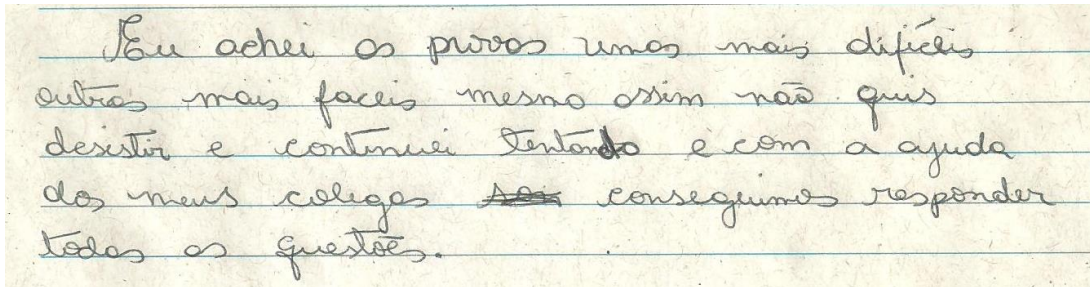 Eu achei as provas umas mais difíceis
outras mais faceis mesmo assim não quis
desistir e continuei tentando e com a ajuda
dos meus colegas conseguimos responder
todas as questões.